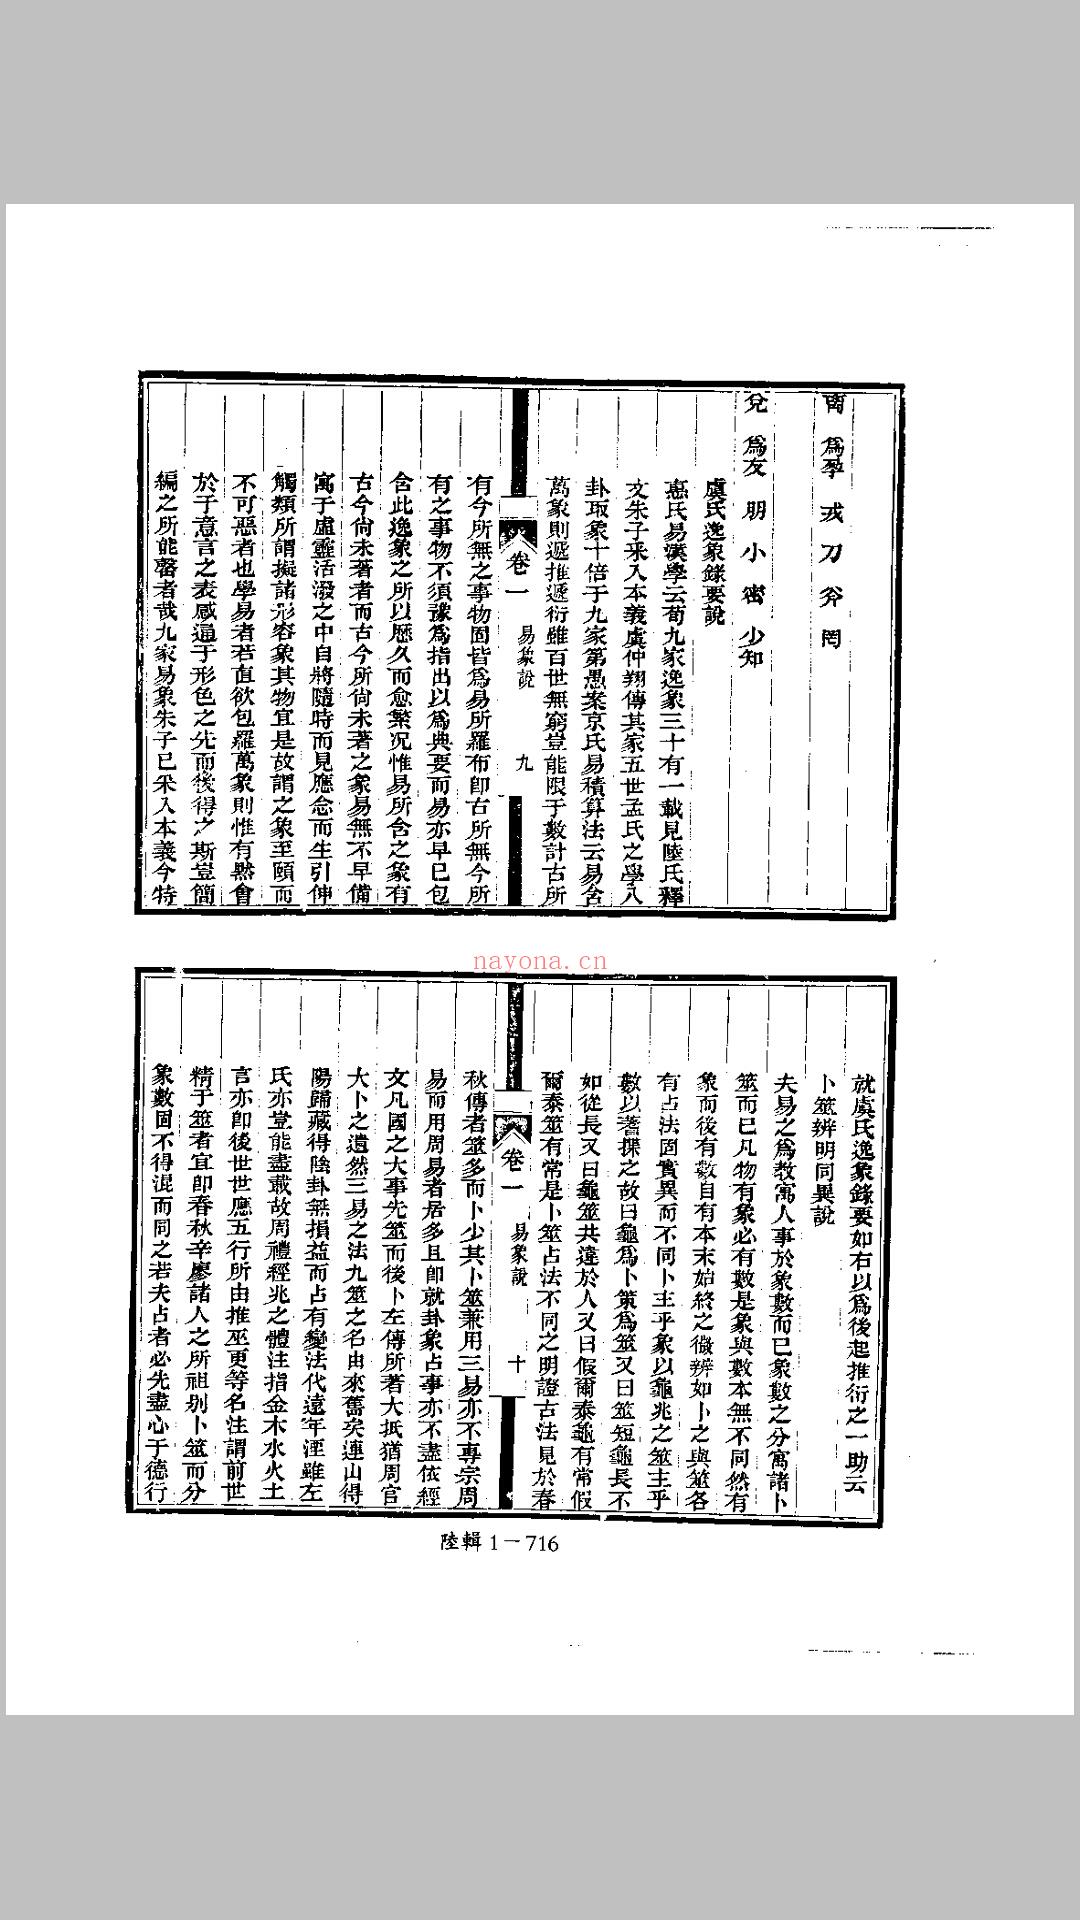 爲孕 戎 刀 斧 罔
兌 爲友 朋 小 密 少知
虞氏逸象錄要說
惠氏易漢學云荀九家逸象三十有一載見陸氏釋
文朱子釆入本義虞仲翔傳其家五世孟氏之學八
卦取象十倍于九家第愚案京氏易積算法云易含
萬象則遞推遞衍雖百世無窮豈能限于數計古所
卷一 易象說 九
有今所無之事物固皆爲易所羅布卽古所無今所
有之事物不須豫爲指出以爲典要而易亦早已包
含此逸象之所以歷久而愈繁況惟易所含之象有
古今尙未著者而古今所尙未著之象易無不早備
寓于虛靈活潑之中自將隨時而見應念而生引伸
觸類所謂擬諸形容象其物宜是故謂之象至頤而
不可惡者也學易者若直欲包羅萬象則惟有默會
於于意言之表感通于形色之先而後得之斯豈簡
編之所能罄者哉九家易象朱子已釆入本義今特
nayona.cn
就虞氏逸象錄要如右以爲後起推衍之一助云
卜筮辨明同異說
夫易之爲敎寓人事於象數而已象數之分寓諸卜
筮而已凡物有象必有數是象與數本無不同然有
象而後有數自有本末始終之微辨如卜之與筮各
有占法固實異而不同卜主乎象以龜兆之筮主乎
數以蓍揲之故曰龜爲卜策爲筮又曰筮短龜長不
如從長又曰龜筮共違於人又曰假爾泰龜有常假
爾泰筮有常是卜筮占法不同之明證古法見於春
卷一 易象說 十
秋傳者筮多而卜少其卜筮兼用三易亦不專宗周
易而用周易者居多且卽就卦象占事亦不盡依經
文凡國之大事先筮而後卜左傳所著大抵猶周官
大卜之遺然三易之法九筮之名由來舊矣連山得
陽歸藏得陰卦無損益而占有變法代遠年湮雖左
氏亦豈能盡載故周禮經兆之體注指金木水火土
言亦卽後世世應五行所由推巫更等名注謂前世
精于筮者宜卽春秋辛廖諸人之所祖别卜筮而分
象數固不得混而同之若夫占者必先盡心于德行
陸輯 1－716